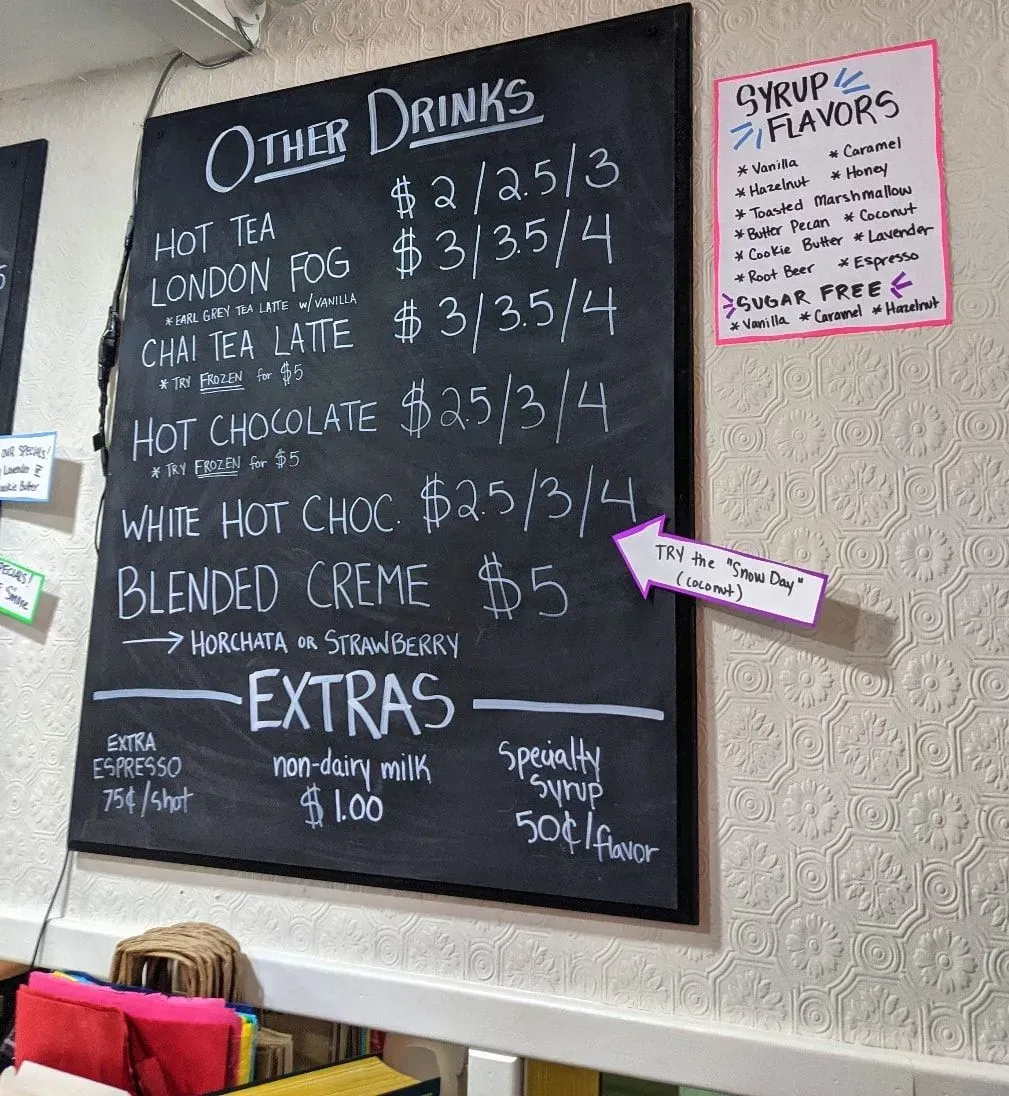 OTHER DRINKS
HOT TEA $2/2.5/3
LONDON FOG $3/3.5/4
*EARL GREY TEA LATTE W/VANILLA
CHAI TEA LATTE $3/3.5/4
* TRY FROZEN for $5
HOT CHOCOLATE $2.5/3/4
* TRY FROZEN for $5
WHITE HOT CHOC. $2.5/3/4
BLENDED CREME $5
→ HORCHATA OR STRAWBERRY
EXTRAS
EXTRA
ESPRESSO
75¢/shot
non-dairy milk
$1.00
Specialty
Syrup
50¢/flavor
TRY the "Snow Day"
(coconut)
SYRUP
FLAVORS
* Vanilla * Caramel
* Hazelnut * Honey
* Toasted Marshmallow
* Butter Pecan * Coconut
* Cookie Butter * Lavender
* Root Beer * Espresso
SUGAR FREE
* Vanilla * Caramel * Hazelnut
OUR SPECIALS!
Lavender
Butter